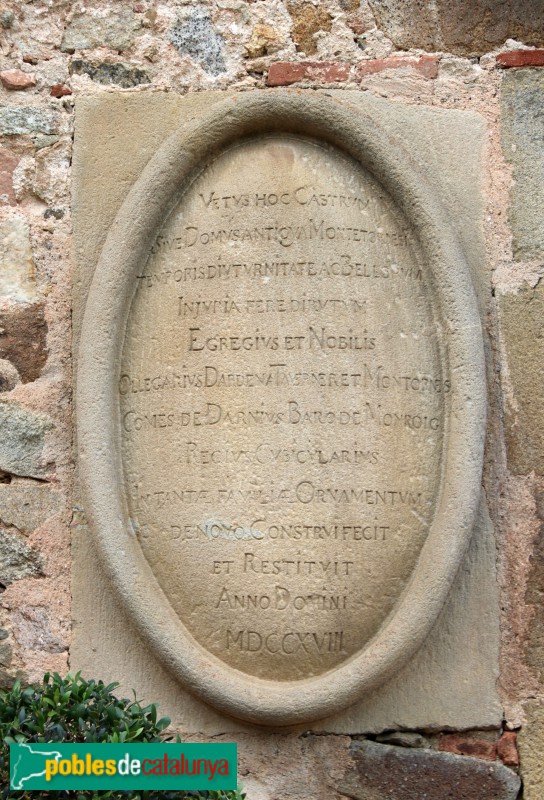 VETVS HOC CASTRVM
SIVE DOMVS ANTIQVA MONTETORNESII
TEMPORIS DIVTVRNITATE AC BELLORVM
INJVRIA FERE DIRVTVM
EGREGIVS ET NOBILIS
OLLEGARIVS DARDENA TAVERNER ET MONTORNES
COMES DE DARNIVS BARO DE MONROIG
REGIVS CVBICVLARIVS
IN TANTÆ FAMILIÆ ORNAMENTVM
DE NOVO CONSTRVI FECIT
ET RESTITVIT
ANNO DOMINI
MDCCXVIII
poblesdecatalunya